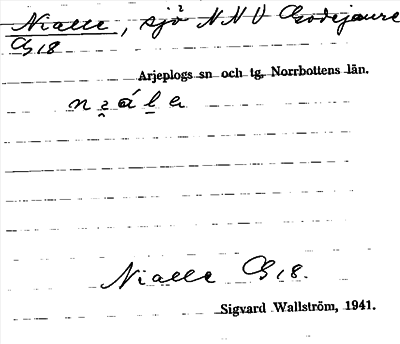 Nialle, sjö² NNV Godejaure
G18
Arjeplogs sn och tg, Norrbottens län.
Nialle G18.
Sigvard Wallström, 1941.